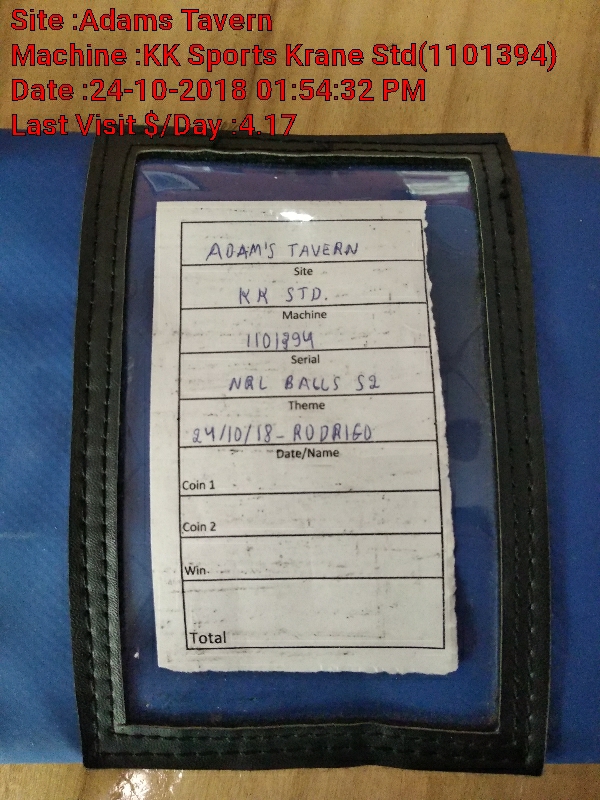 Site :Adams Tavern
Machine :KK Sports Krane Std(1101394)
Date :24-10-2018 01:54:32 PM
Last Visit $/Day :4.17
ADAM'S TAVERN
Site
KK STD.
Machine
1101394
Serial
NRL BALLS S2
Theme
24/10/18- RODRIGO
Date/Name
Coin 1
Coin 2
Win
Total